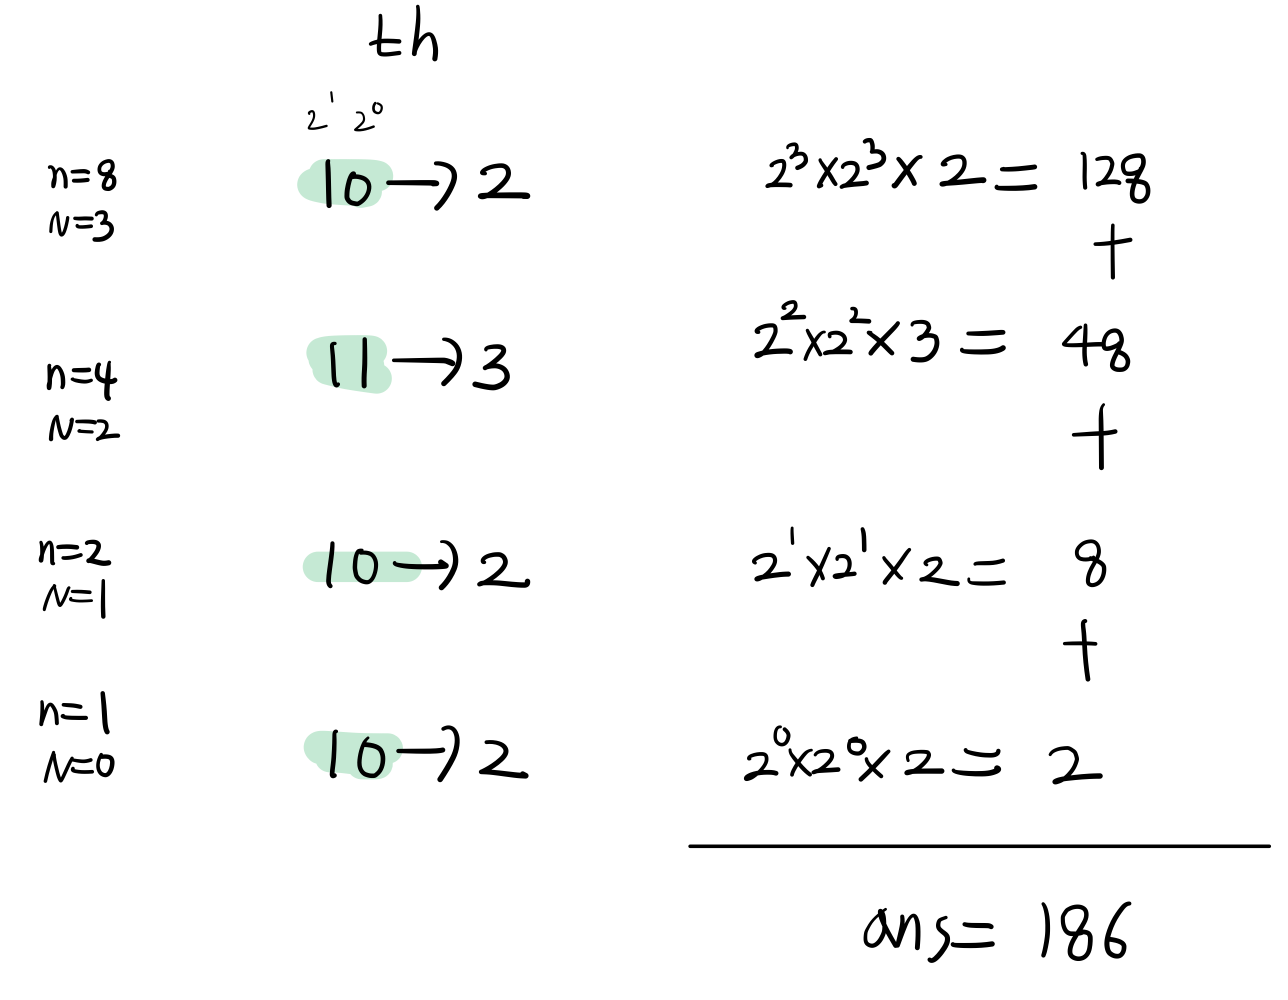 th
2¹ 2⁰
n=8 10→2 2³×2³×2=128
N=3
+
n=4 11→3 2²×2²×3=48
N=2
+
n=2 10→2 2¹×2¹×2=8
N=1
+
n=1 10→2 2⁰×2⁰×2=2
N=0
ans=186